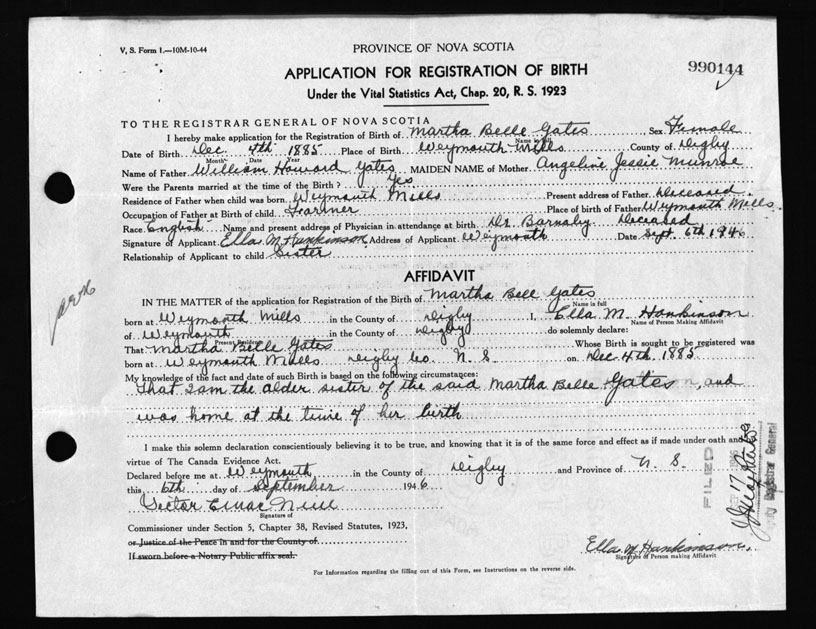 V. S. Form 1.—10M-10-44
PROVINCE OF NOVA SCOTIA
990144
APPLICATION FOR REGISTRATION OF BIRTH
Under the Vital Statistics Act, Chap. 20, R. S. 1923
TO THE REGISTRAR GENERAL OF NOVA SCOTIA
I hereby make application for the Registration of Birth of Martha Belle Gates Sex Female
Name in full
Date of Birth Dec 4th 1885 Place of Birth Weymouth Mills County of Digby
Month Date Year
Name of Father William Howard Gates MAIDEN NAME of Mother Angeline Jessie Munroe
Were the Parents married at the time of the Birth? Yes
Residence of Father when child was born Weymouth Mills Present address of Father Deceased.
Occupation of Father at Birth of child Farmer Place of birth of Father Weymouth Mills.
Race English Name and present address of Physician in attendance at birth Dr Barnaby Deceased
Signature of Applicant Ella M Hankinson Address of Applicant Weymouth Date Sept. 6th 1946
Relationship of Applicant to child Sister
AFFIDAVIT
IN THE MATTER of the application for Registration of the Birth of Martha Bell Gates
Name in full
born at Weymouth Mills in the County of Digby I, Ella M. Hankinson
Name of Person Making Affidavit
of Weymouth in the County of Digby do solemnly declare:
Present Residence
That Martha Belle Gates Whose Birth is sought to be registered was
born at Weymouth Mills Digby Co. N. S. on Dec 4th 1885
My knowledge of the fact and date of such Birth is based on the following circumstances:
That I am the alder sister of the said Martha Belle Gates, and
was home at the time of her birth
I make this solemn declaration conscientiously believing it to be true, and knowing that it is of the same force and effect as if made under oath and by
virtue of The Canada Evidence Act.
Declared before me at Weymouth in the County of Digby and Province of N. S.
this 6th day of September 1946
Victor
Signature of
Commissioner under Section 5, Chapter 38, Revised Statutes, 1923,
or Justice of the Peace in and for the County of
If sworn before a Notary Public affix seal.
Ella M Hankinson.
Signature of Person making Affidavit
For Information regarding the filling out of this Form, see Instructions on the reverse side.
FILED
Deputy Registrar General